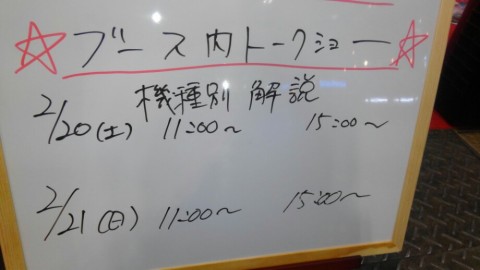 ☆ブース内トークショー☆
機種別 解説
2/20(土) 11:00～ 15:00～
2/21(日) 11:00～ 15:00～